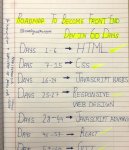 ROADMAP TO BECOME FRONT END
DEV IN 60 DAYS
DAYS 1-6 → HTML
DAYS 7-15 → CSS
DAYS 16-24 → JAVASCRIPT BASICS
DAYS 25-27 → RESPONSIVE
WEB DESIGN
DAYS 28-44 → JAVASCRIPT ADVANCE
DAYS 45-55 → REACT
DAYS